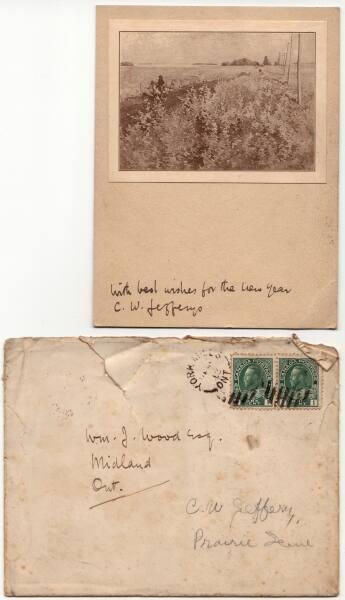 With best wishes for the new year
C. W. Jefferys
YORK MILLS
ONT
1
Wm. J. Wood Esq.
Midland
Ont.
C. W. Jefferys,
Prairie Scene